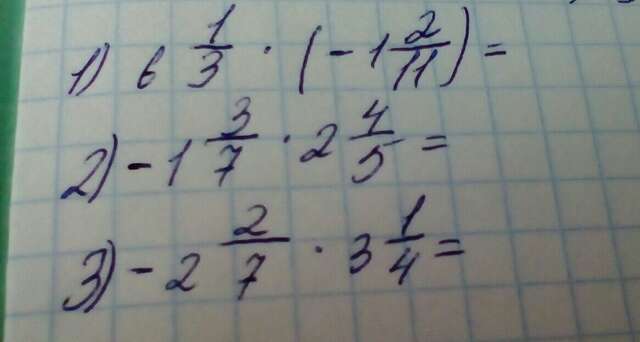 1) 6 1/3 · (-1 2/11) =
2) -1 3/7 · 2 4/5 =
3) -2 2/7 · 3 1/4 =